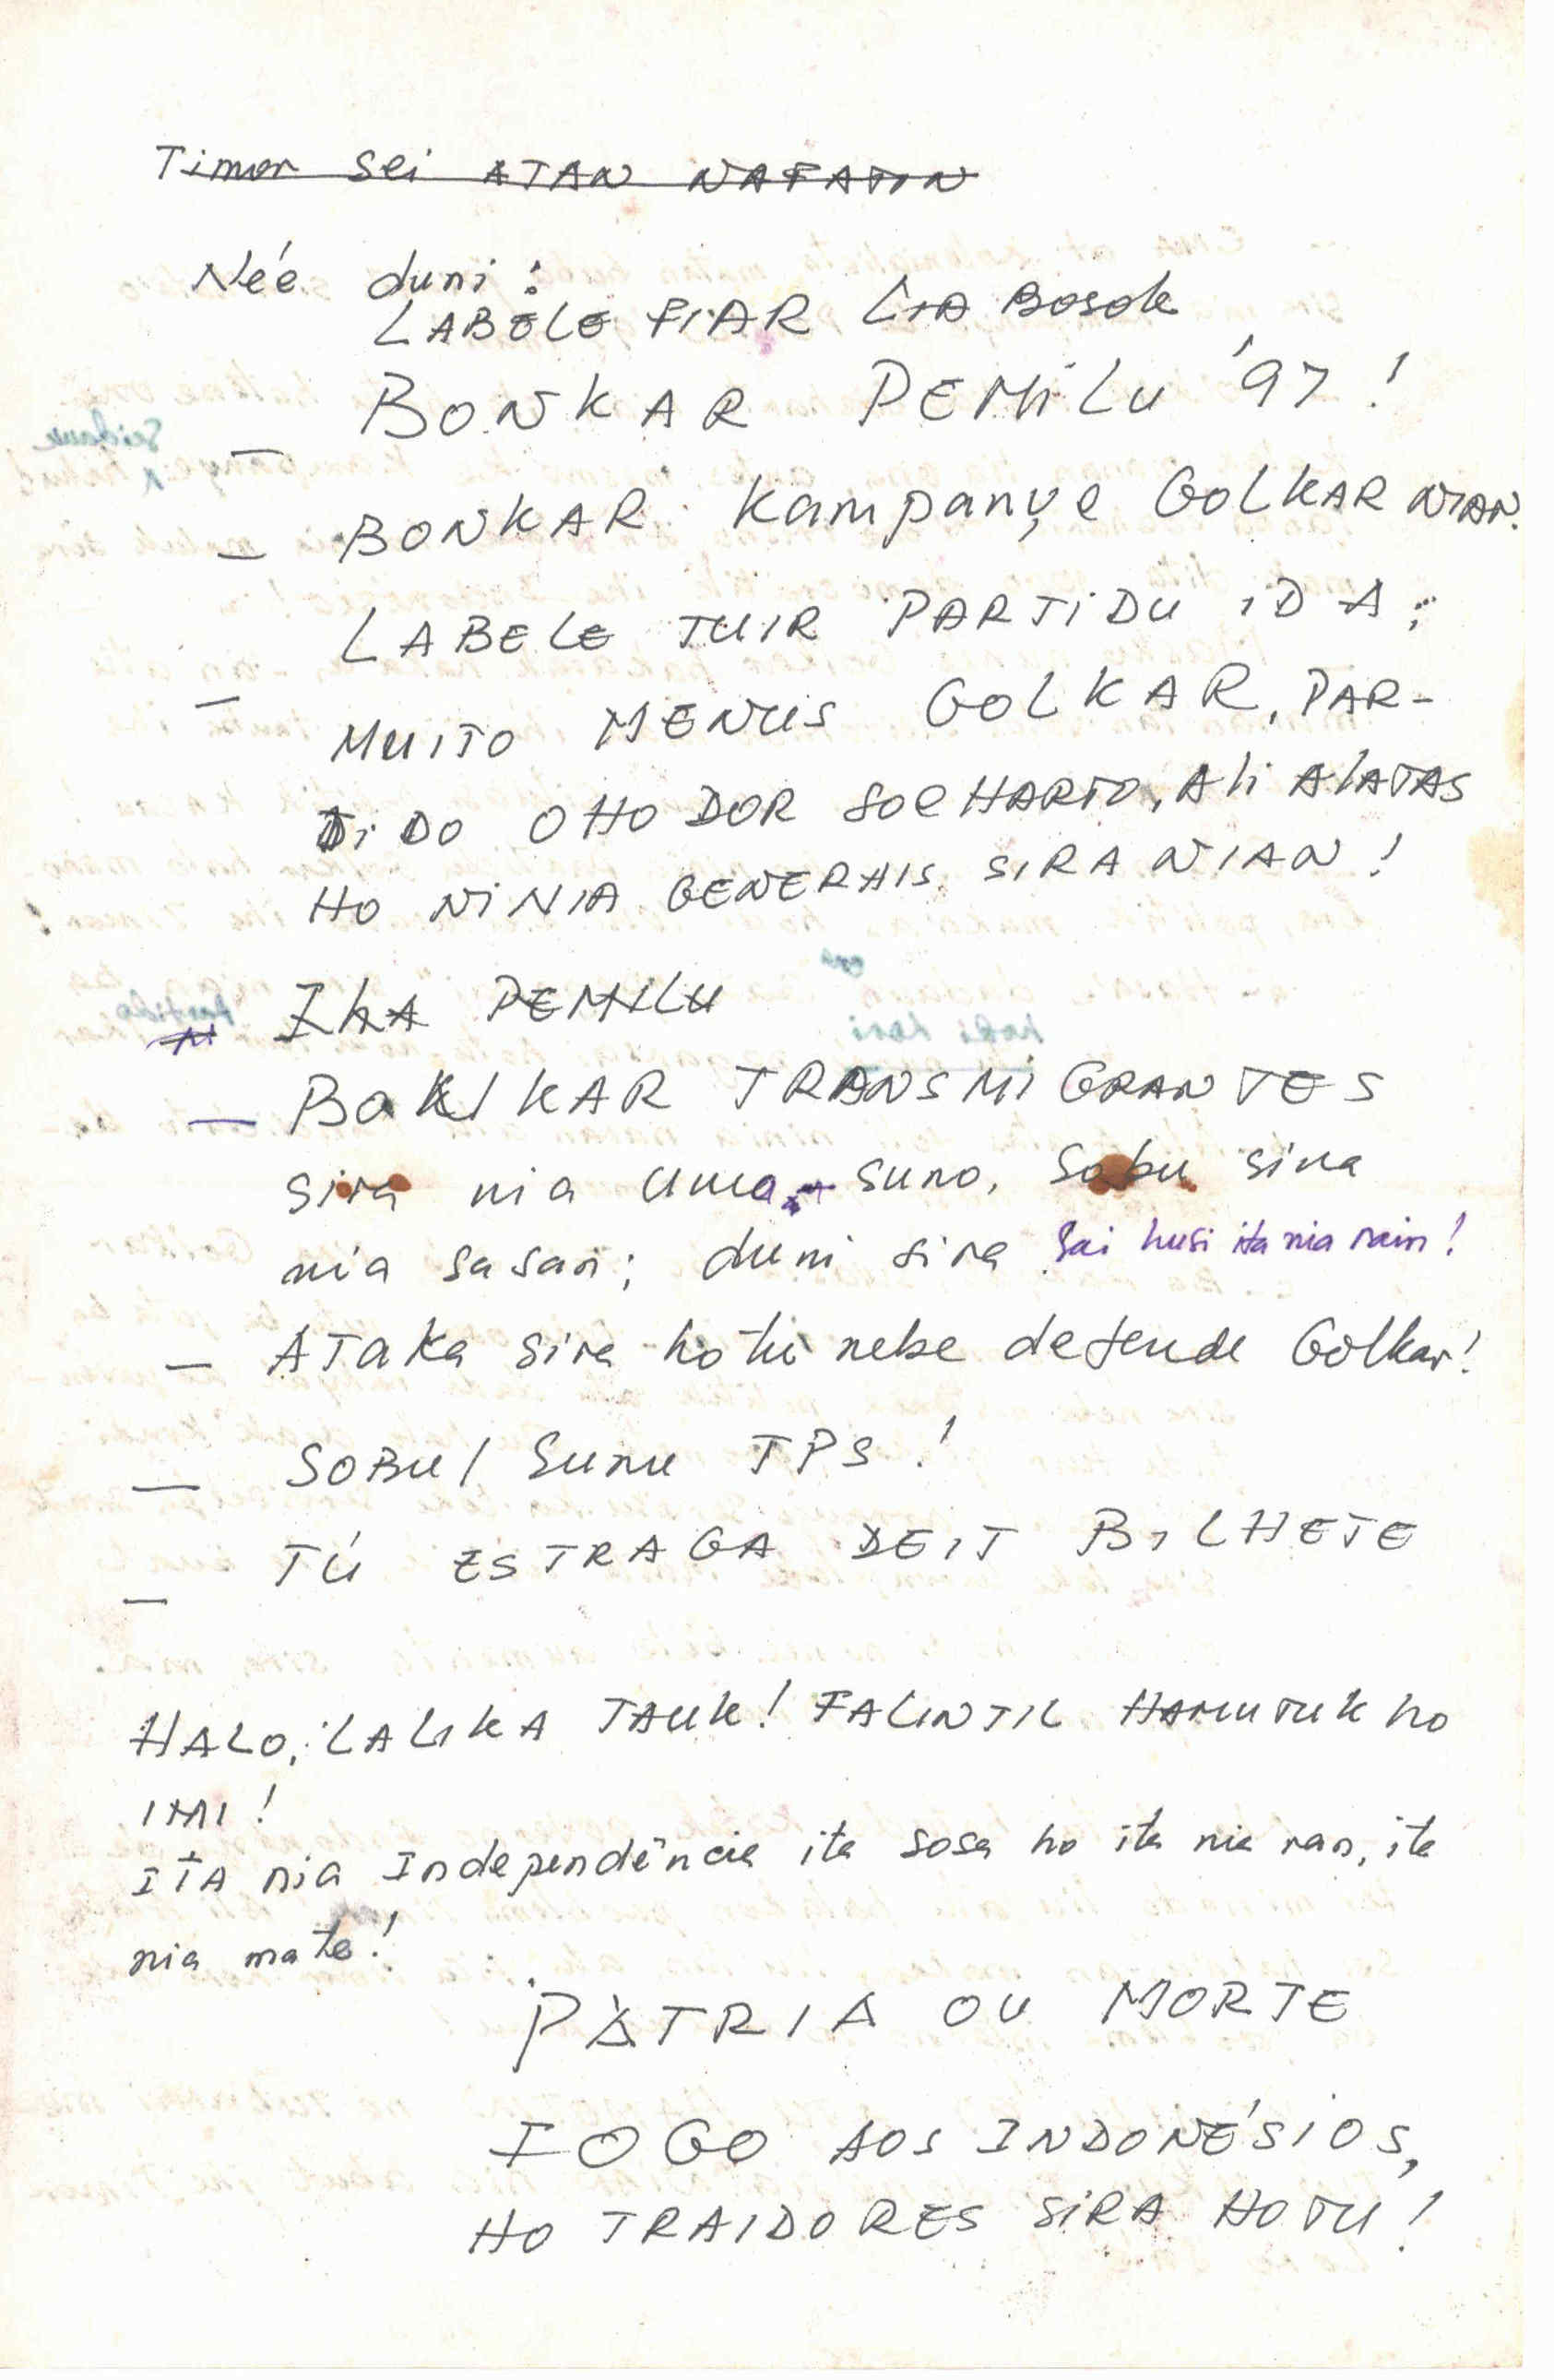 Timor sei ATAN NAFATIN
Née duni:
LABELE FIAR LIA BOSOK
BONKAR PEMiLu '97!
— BONKAR Kampanye GOLKAR NIAN.
— LABELE TUIR PARTIDU iDA;
— MUITO MENUS GOLKAR, PAR-
TiDO OHO DOR SOEHARTO, Ali AlATAS
HO NiNIA GENERAIS SIRA NIAN!
IhA PEMiLU
— BAKKAR TRANSMiGRANTES
sira nia uma, sunu, Sobu sira
nia sasan; duni sira sai husi ita nia rain!
— ATAKa sira hotu nebe defende Golkar!
— SOBU/ Sunu TPS!
— TÚ ESTRAGA DEIT BILHETE
HALO, LALIKA TAUK! FALINTIL HAMUTUK ho
IMI!
ITA nia Independência ita sosa ho ita nia ran, ita
nia mate!
PÁTRIA OU MORTE
FOGO AOS INDONÉSIOS,
HO TRAIDORES SiRA HOTU!